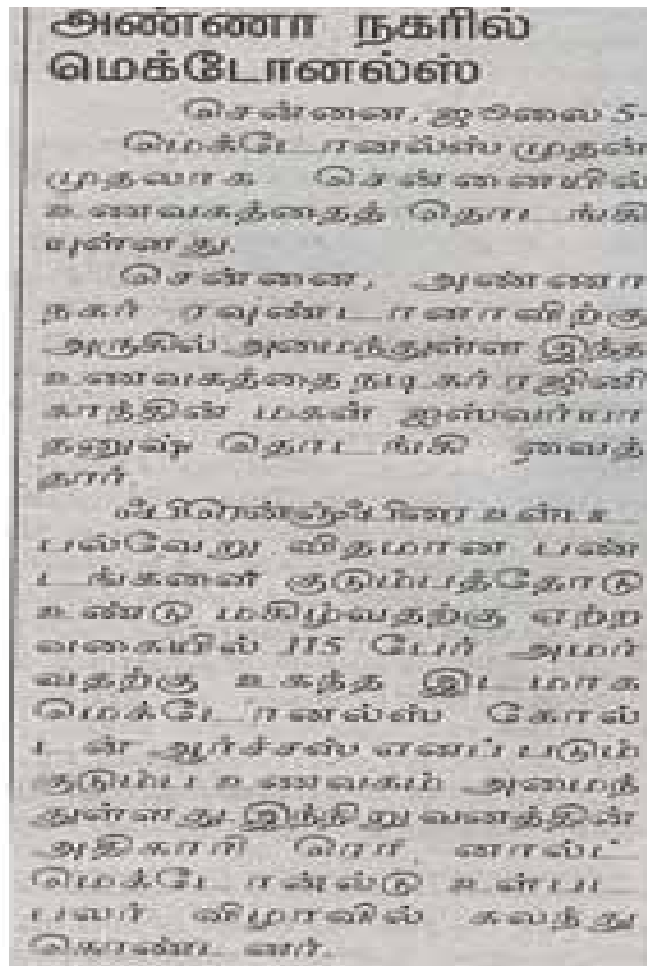 அண்ணா நகரில்
மெக்டோனல்ஸ்
சென்னை, ஜூலை 5-
மெக்டோனல்ஸ் முதன்
முதலாக சென்னையில்
உணவகத்தைத் தொடங்கி
யுள்ளது.
சென்னை, அண்ணா
நகர் ரவுண்டானாவிற்கு
அருகில் அமைந்துள்ள இந்த
உணவகத்தை நடிகர் ரஜினி
காந்தின் மகள் ஐஸ்வர்யா
தனுஷ் தொடங்கி வைத்
தார்.
பல்வேறு விதமான பண்
டங்களை குடும்பத்தோடு
உண்டு மகிழ்வதற்கு ஏற்ற
வகையில் 115 பேர் அமர்
வதற்கு உகந்த இடமாக
மெக்டோனல்ஸ் கோல்
டன் ஆர்ச்சஸ் எனப் படும்
குடும்ப உணவகம் அமைந்
துள்ளது. இந்நிறுவனத்தின்
அதிகாரி ரொனால்ட்
மெக்டோனல்டு உள்பட
பலர் விழாவில் கலந்து
கொண்டனர்.